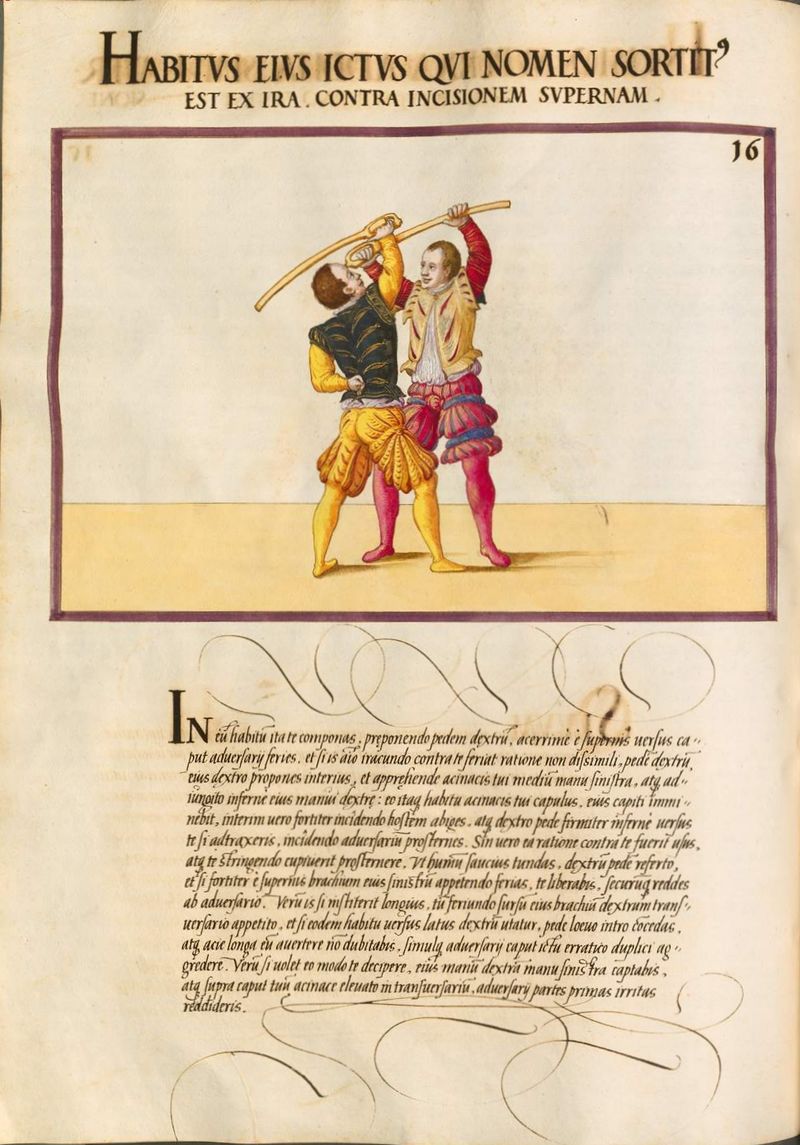 HABITVS EIVS ICTVS QVI NOMEN SORTITꝰ
EST EX IRA. CONTRA INCISIONEM SVPERNAM.
16
IN eū habitū ita te componas, pręponendo pedem dextrū, acerrimè è supernis uersus ca-
put aduersarij feries, et si is aīo iracundo contra te feriat ratione non dissimili, pedē dextrū,
eius dextro propones interius, et appręhende acinacis tui mediū manu sinistra, atq; ad-
iungito infernè eius manui dextrę: eo itaq; habitu acinacis tui capulus, eius capiti immi-
nebit, interim uero fortiter incidendo hostem abiges, atq; dextro pede firmiter infernè uersus
te si adtraxeris, incidendo aduersariū prosternes. Sin uero ea ratione contra te fuerit usus,
atq; te stringendo cupiuerit prosternere. Vt humū saucius tundas, dextrū pedē referto,
et si fortiter è supernis brachium eius sinistrū appetendo ferias, te liberabis, securūq; reddes
ab aduersario. Verū is si institerit longius, tu feriundo sursū eius brachiū dextrum trans-
uersario appetito, et si eodem habitu uersus latus dextrū utatur, pede loeuo intro cōcedas,
atq; acie longa eū auertere nō dubitabis, simulq; aduersarij caput ictu erratico duplici ag-
gredere. Verū si uolet eo modo te decipere, eius manū dextrā manu sinistra captabis,
atq; supra caput tuū acinace eleuato in transuersariū, aduersarij partes primas irritas
reddideris.